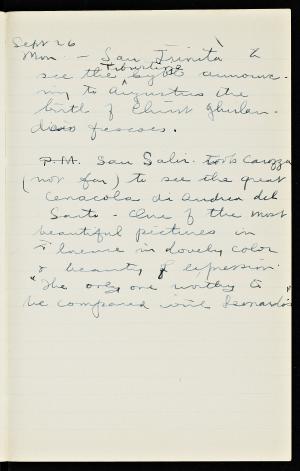 Sept 26
Mon. - San Trinita to
see the Tiburtine Sybil announc-
ing to Augustus the
birth of Christ Ghirlan-
daio frescoes.
P.M. San Salvi. Carozza
(not far) to see the great
Cenacola di Andrea del
Sarto - One of the most
beautiful pictures in
Florence in lovely color
& beauty of expression.
"The only one worthy to
be compared with Leonardo's"